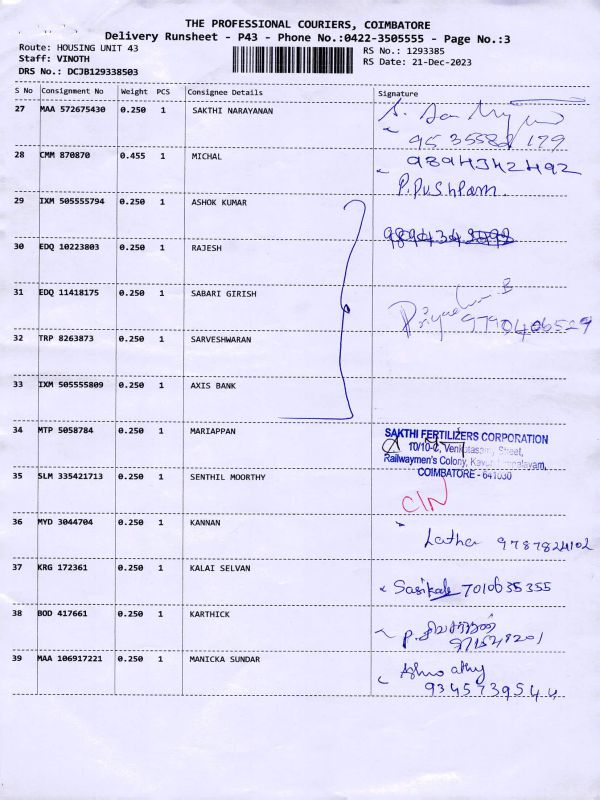 THE PROFESSIONAL COURIERS, COIMBATORE
Delivery Runsheet - P43 - Phone No.:0422-3505555 - Page No.:3
Route: HOUSING UNIT 43
RS No.: 1293385
Staff: VINOTH
RS Date: 21-Dec-2023
DRS No.: DCJB129338503
S No Consignment No Weight PCS Consignee Details Signature
27 MAA 572675430 0.250 1 SAKTHI NARAYANAN
28 CMM 870870 0.455 1 MICHAL 9894342492
P.Pushpam.
29 IXM 505555794 0.250 1 ASHOK KUMAR
30 EDQ 10223803 0.250 1 RAJESH
31 EDQ 11418175 0.250 1 SABARI GIRISH
9790406529
32 TRP 8263873 0.250 1 SARVESHWARAN
33 IXM 505555809 0.250 1 AXIS BANK
34 MTP 5058784 0.250 1 MARIAPPAN
SAKTHI FERTILIZERS CORPORATION
Street,
Railwaymen's Colony,
COIMBATORE - 641030
35 SLM 335421713 0.250 1 SENTHIL MOORTHY
36 MYD 3044704 0.250 1 KANNAN
Latha 9787824102
37 KRG 172361 0.250 1 KALAI SELVAN
Sasikala 7010635355
38 BOD 417661 0.250 1 KARTHICK
39 MAA 106917221 0.250 1 MANICKA SUNDAR
9345739544